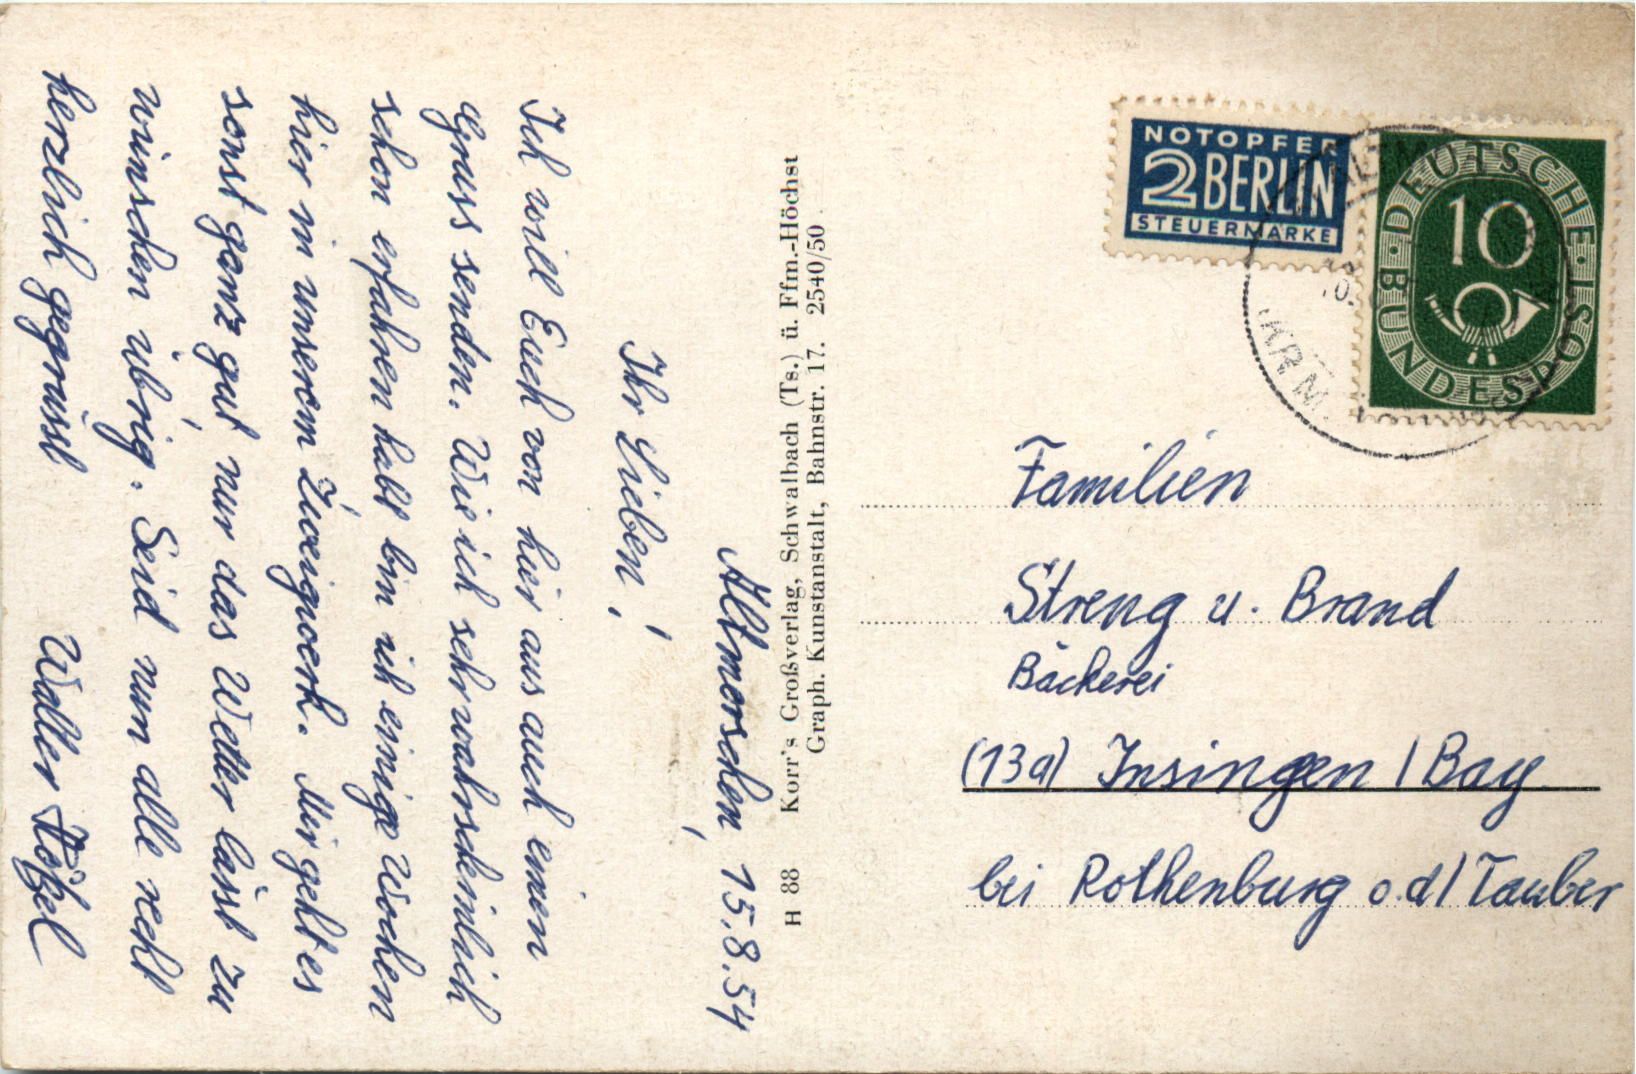 Altmorschen, 15.8.54
Ihr Lieben!
Ich will Euch von hier aus auch einen
Gruss senden. Wie ich sehr wahrscheinlich
schon erfahren habt bin ich einige Wochen
hier in unserem Zweigwerk. Mir geht es
sonst ganz gut, nur das Wetter lässt zu
wünschen übrig. Seid nun alle recht
herzlich gegrüsst
Walter
H 88 Korr's Großverlag, Schwalbach (Ts.) ü. Ffm.-Höchst
Graph. Kunstanstalt, Bahnstr. 17. 2540/50
NOTOPFER
2 BERLIN
STEUERMARKE
DEUTSCHE BUNDESPOST
10
Familien
Streng u. Brand
Bäckerei
(13a) Insingen / Bay
bei Rothenburg o.d/Tauber